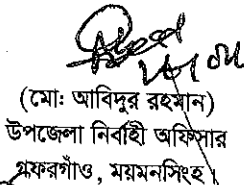 (মো: আবিদুর রহমান)
উপজেলা নির্বাহী অফিসার
গফরগাঁও, ময়মনসিংহ।